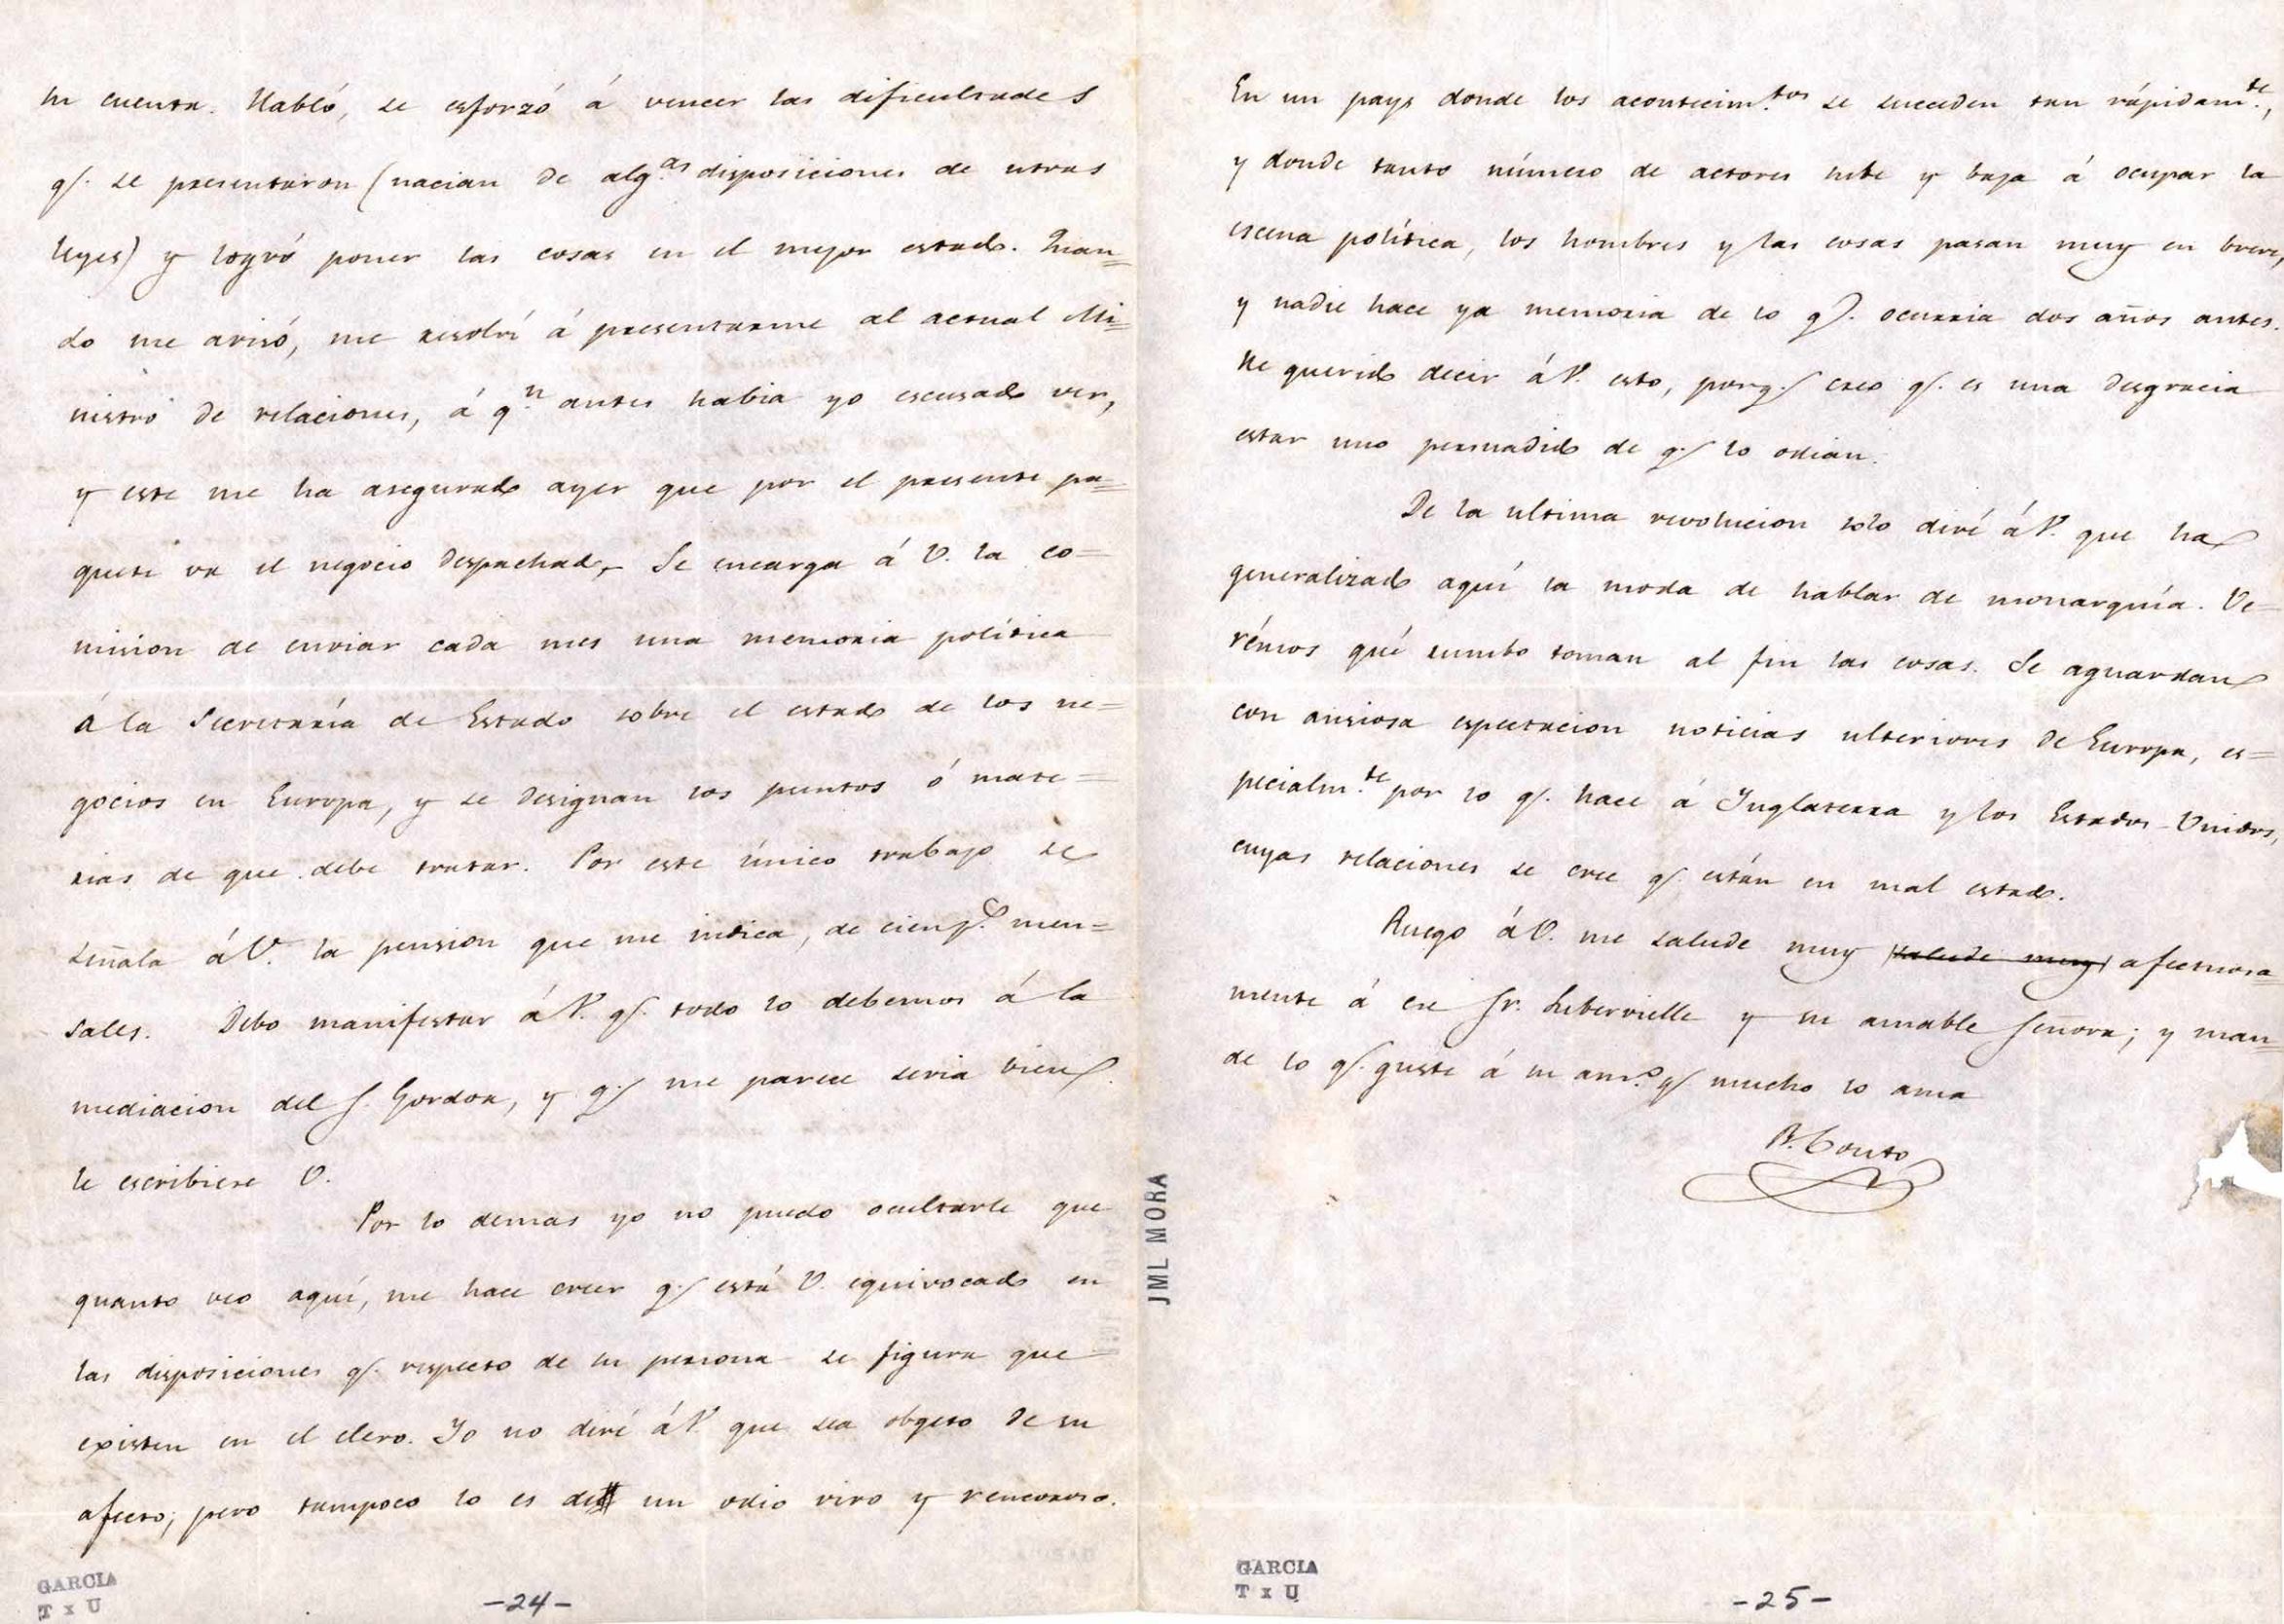 su cuenta. Habló, se esforzó á vencer las dificultades
q.e se presentaron (nacian de alg.as disposiciones de ntras
leyes) y logró poner las cosas en el mejor estado. Quan=
do me avisó, me resolví á presentarme al actual Mi=
nistro de relaciones, á q.n antes habia yo escusado ver,
y este me ha asegurado ayer que por el presente pa=
quete va el negocio despachado. Se encarga á V. la co=
mision de enviar cada mes una memoria política
á la Secretaría de Estado sobre el estado de los ne=
gocios en Europa, y se designan los puntos ó mate=
rias de que debe tratar. Por este único trabajo se
señala á V. la pension que me indica, de cien p.s men=
sales. Debo manifestar á V. q.e todo lo debemos á la
mediacion del S. Gordoa, y q.e me parece seria bien
le escribiese V.
Por lo demas yo no puedo ocultarle que
quanto veo aquí, me hace creer q.e está V. equivocado en
las disposiciones q.e respecto de su persona se figura que
existen en el clero. Yo no diré á V. que sea obgeto de su
afecto; pero tampoco lo es de un odio vivo y rencoroso.
GARCIA
T x U
-24-
JML MORA
En un pays donde los acontecim.tos se suceden tan rápidam.te,
y donde tanto número de actores sube y baja á ocupar la
escena política, los hombres y las cosas pasan muy en breve,
y nadie hace ya memoria de lo q.e ocurria dos años antes.
He querido decir á V. esto, porq.e creo q.e es una desgracia
estar uno persuadido de q.e lo odian.
De la ultima revolucion solo diré á V. que ha
generalizado aquí la moda de hablar de monarquía. Ve=
rémos qué rumbo toman al fin las cosas. Se aguardan
con ansiosa espectacion noticias ulteriores de Europa, es=
pecialm.te por lo q.e hace á Inglaterra y los Estados-Unidos,
cuyas relaciones se cree q.e están en mal estado.
Ruego á V. me salude muy salude muy afectuosa=
mente á ese Sr. Lubervielle y su amable Señora; y man=
de lo q.e guste á su am.o q.e mucho lo ama
B. Couto
GARCIA
T x U
-25-